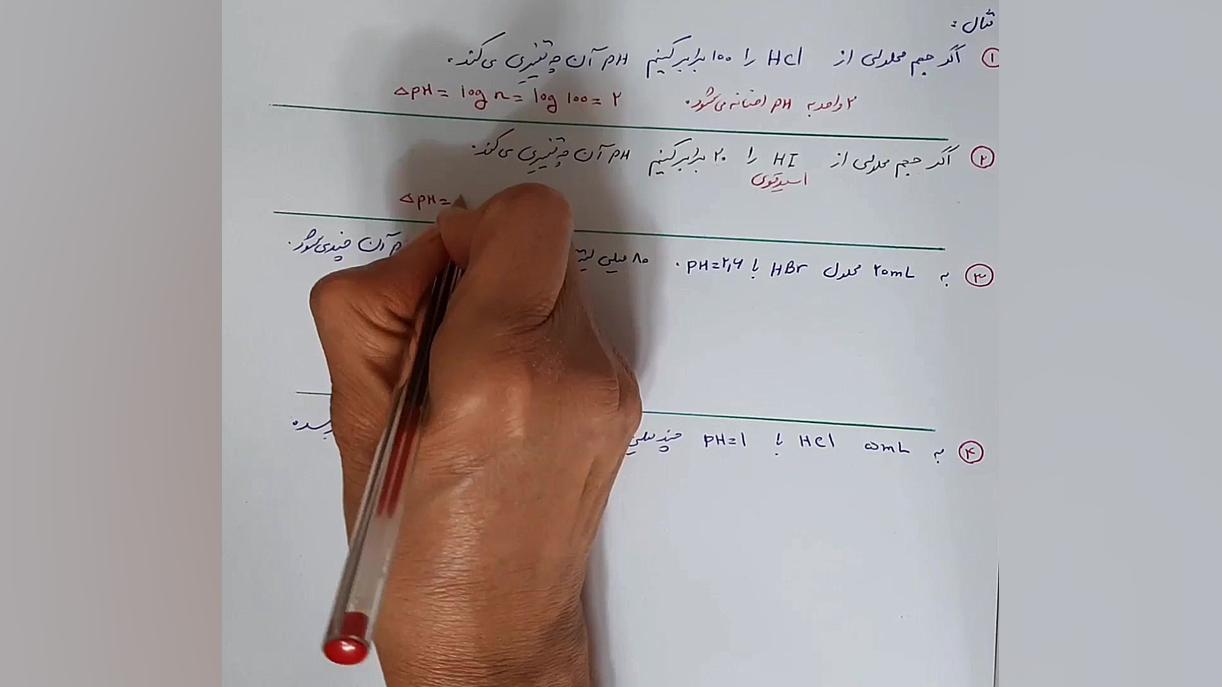 مثال :
۱ اگر حجم محلولی از HCl را ۱۰۰ برابر کنیم PH آن چه تغییری می‌کند.
ΔPH = log n = log 100 = ۲ ۲ واحد به PH اضافه می‌شود.
۲ اگر حجم محلولی از HI را ۲۰ برابر کنیم PH آن چه تغییری می‌کند.
اسید قوی
ΔPH =
۳ به ۲۰mL محلول HBr با PH=۲,۶ ، ۸۰ میلی آن چند می‌شود.
۴ به ۵mL HCl با PH=1 چند میلی